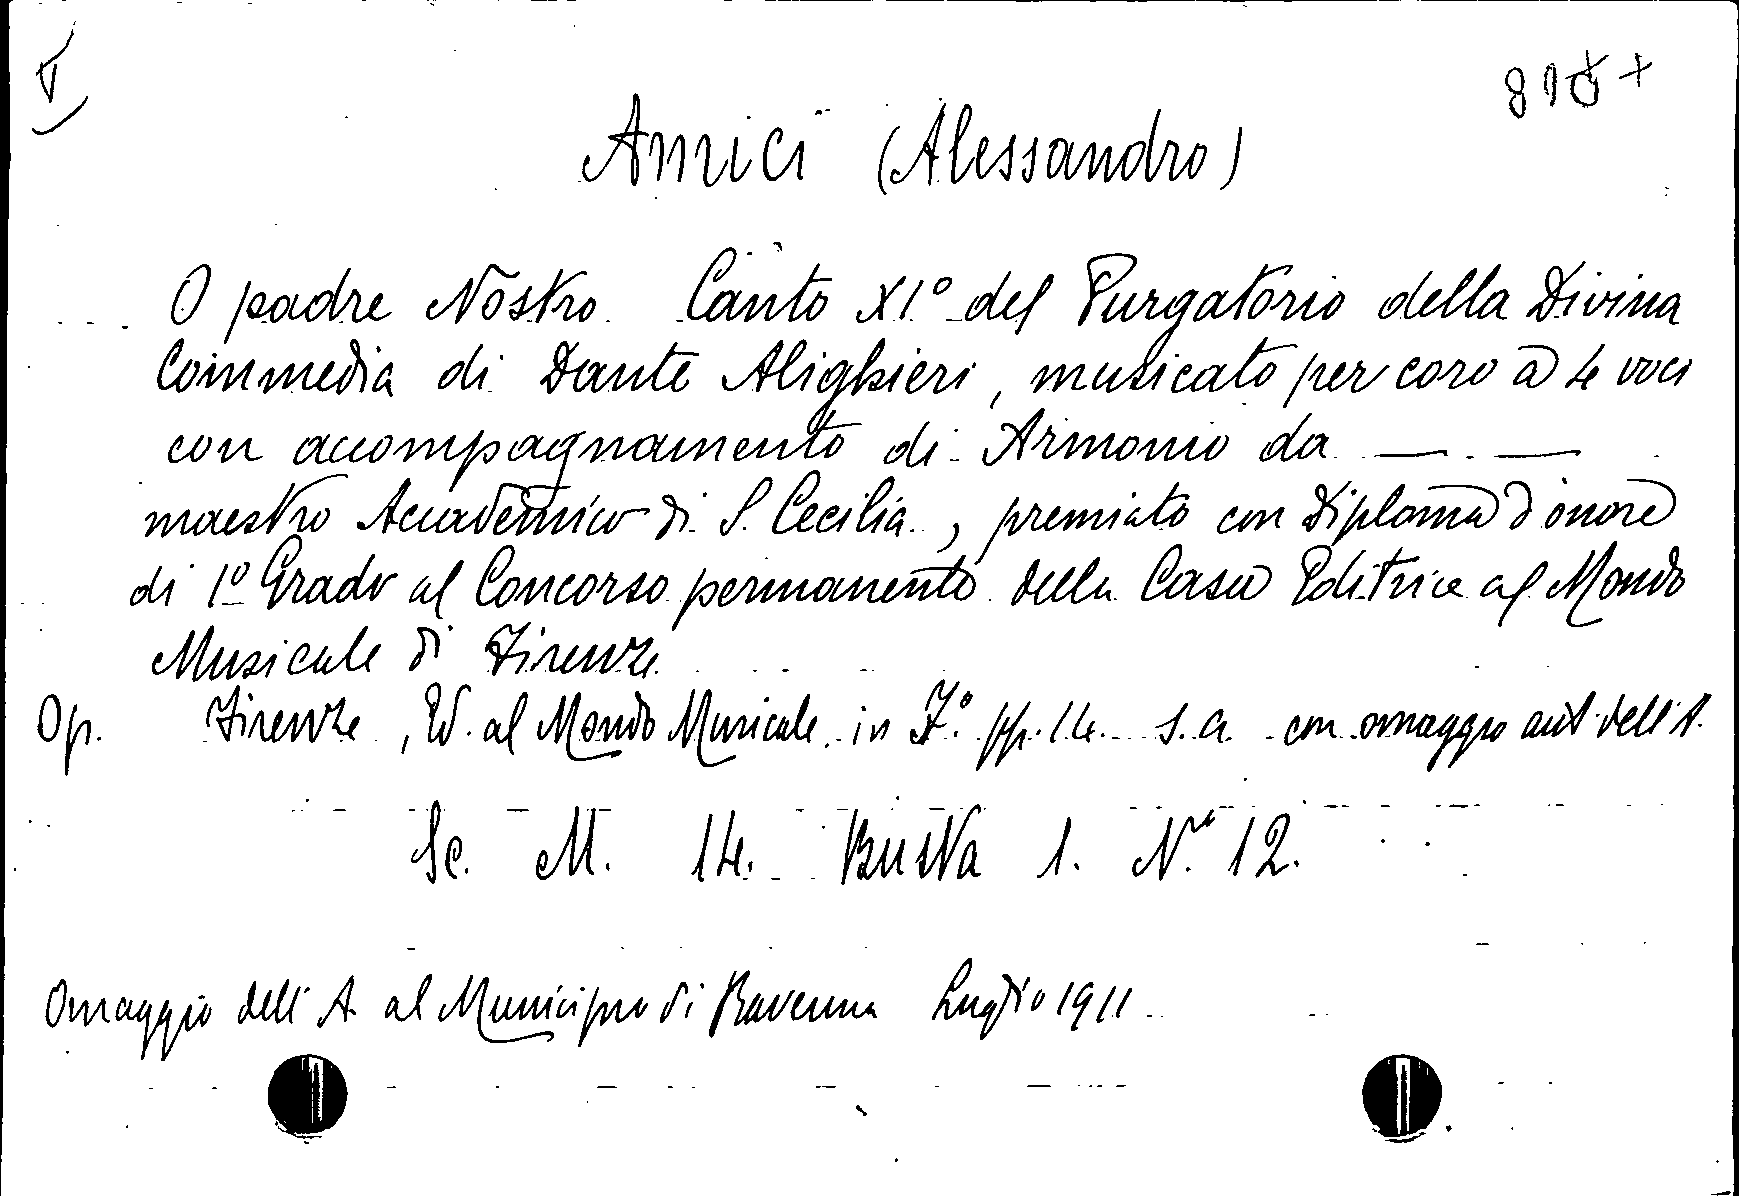 Amici (Alessandro)
O padre Nostro. Canto XI° del Purgatorio della Divina
Commedia di Dante Alighieri, musicato per coro a 4 voci
con accompagnamento di Armonio da — —
maestro Accademico di S. Cecilia, premiato con Diploma d'onore
di 1° Grado al Concorso permanente della Casa Editrice al Mondo
Musicale di Firenze
Op. Firenze, al Mondo Musicale. in F.° pp. 14. s.a. con omaggio aut dell'A.
Sc. M. 14. Busta 1. N.° 12.
Omaggio dell'A. al Municipio di Ravenna Luglio 1911